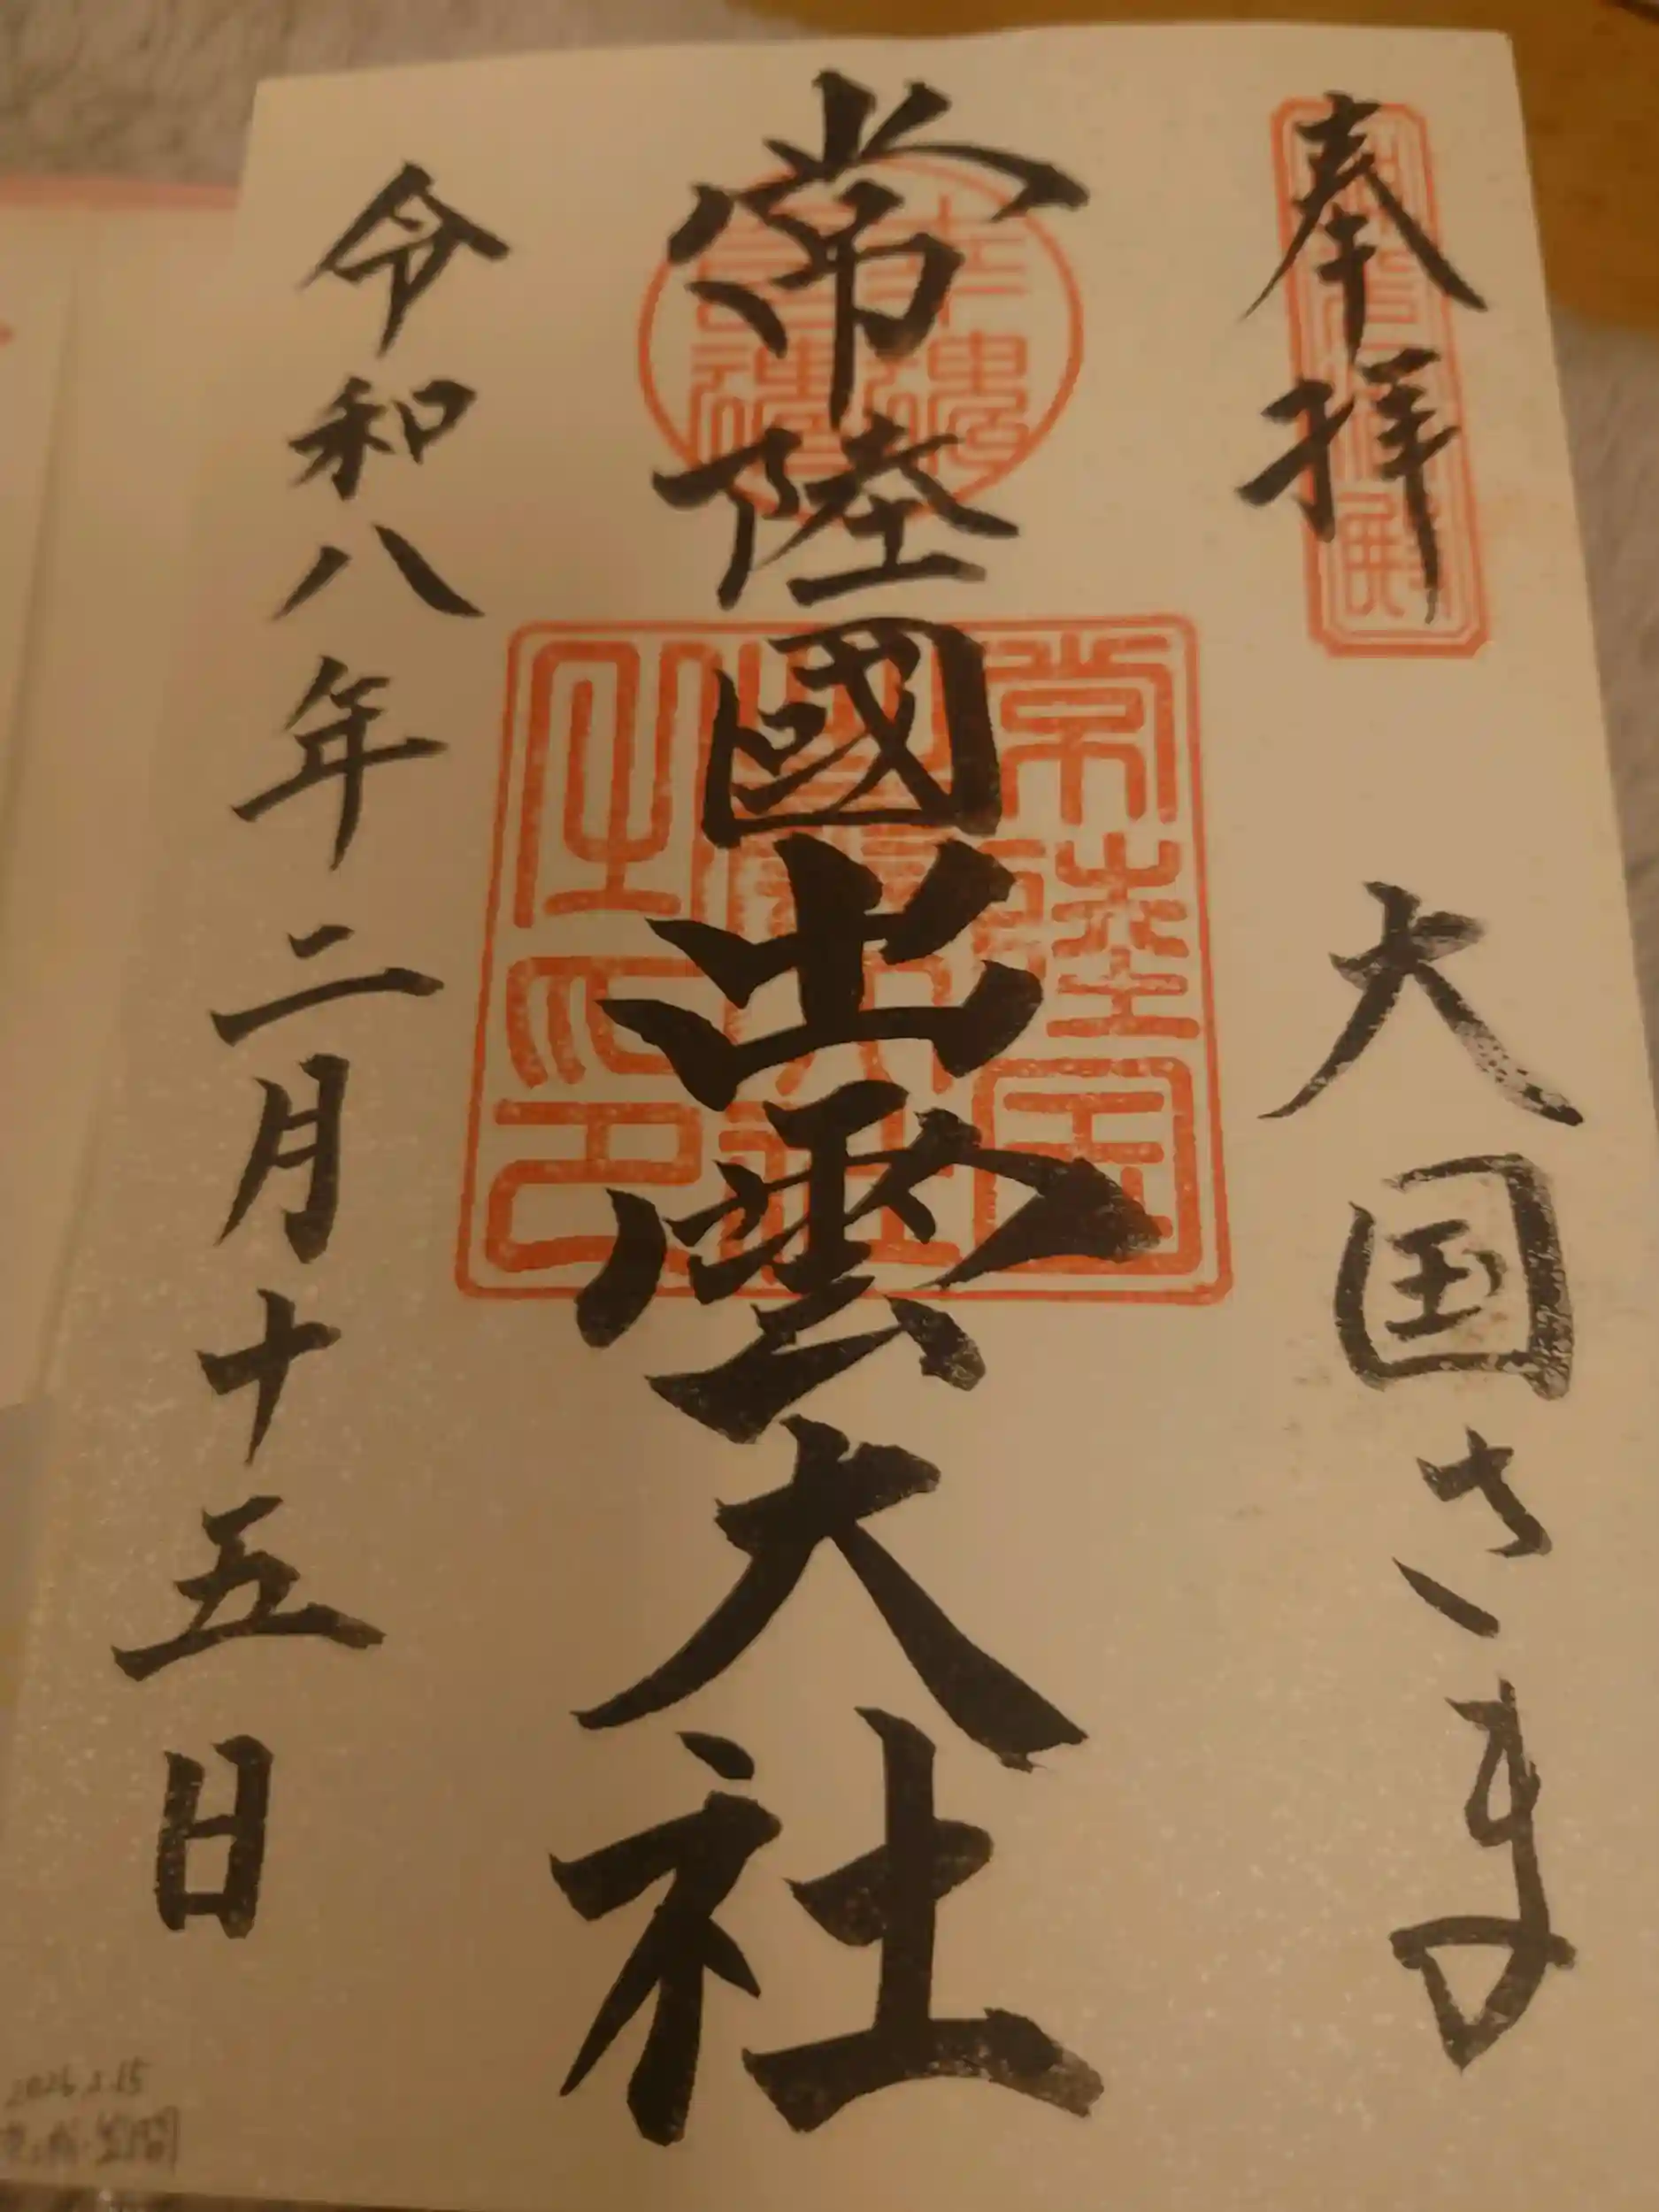 奉拝
大国さま
常陸國出雲大社
常陸国出雲大社之印
令和八年二月十五日
2026.2.15
笠間